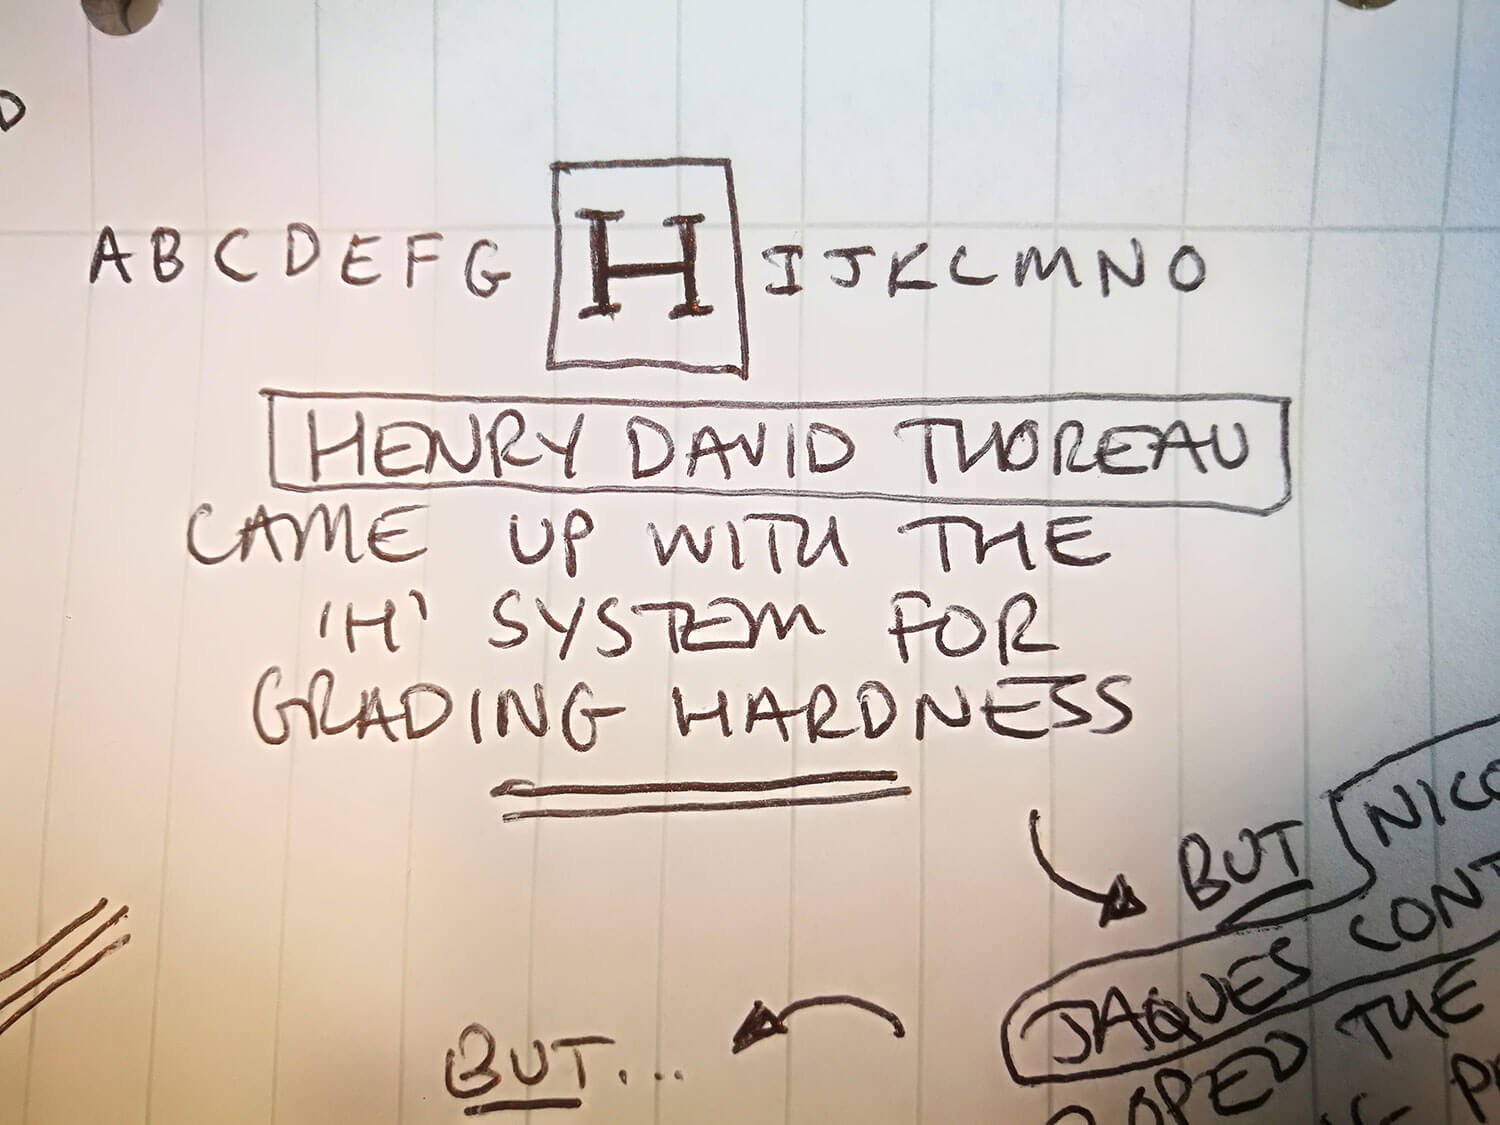 D
ABCDEFG H IJKLMNO
HENRY DAVID THOREAU
CAME UP WITH THE
'H' SYSTEM FOR
GRADING HARDNESS
BUT
JAQUES
THE
BUT...